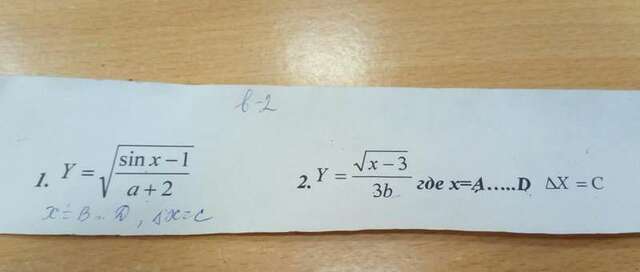 в-2
1. Y = √((sin x − 1)/(a + 2))
x = B .. D, Δx = C
2. Y = √(x − 3)/(3b) где x=A.....D ΔX = C